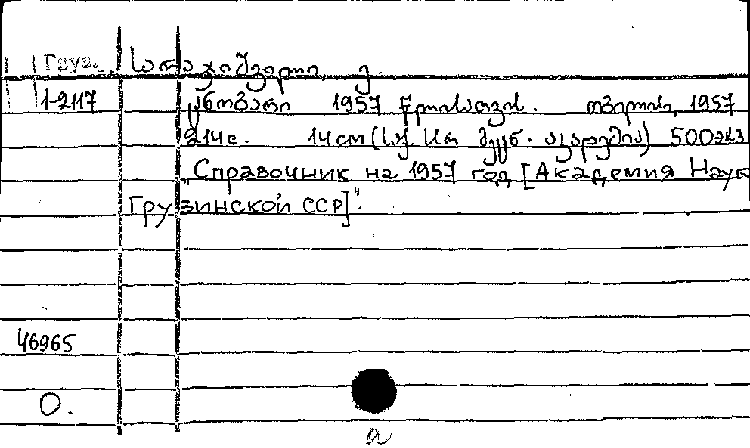 Груз.
1-2117
ცნობარი 1957 წლისათვის. თბილისი, 1957
214с. 14см (საქ. სსრ მეცნ. აკადემია) 500экз
„Справочник на 1957 год [Академия Наук
Грузинской ССР]".
46965
0.